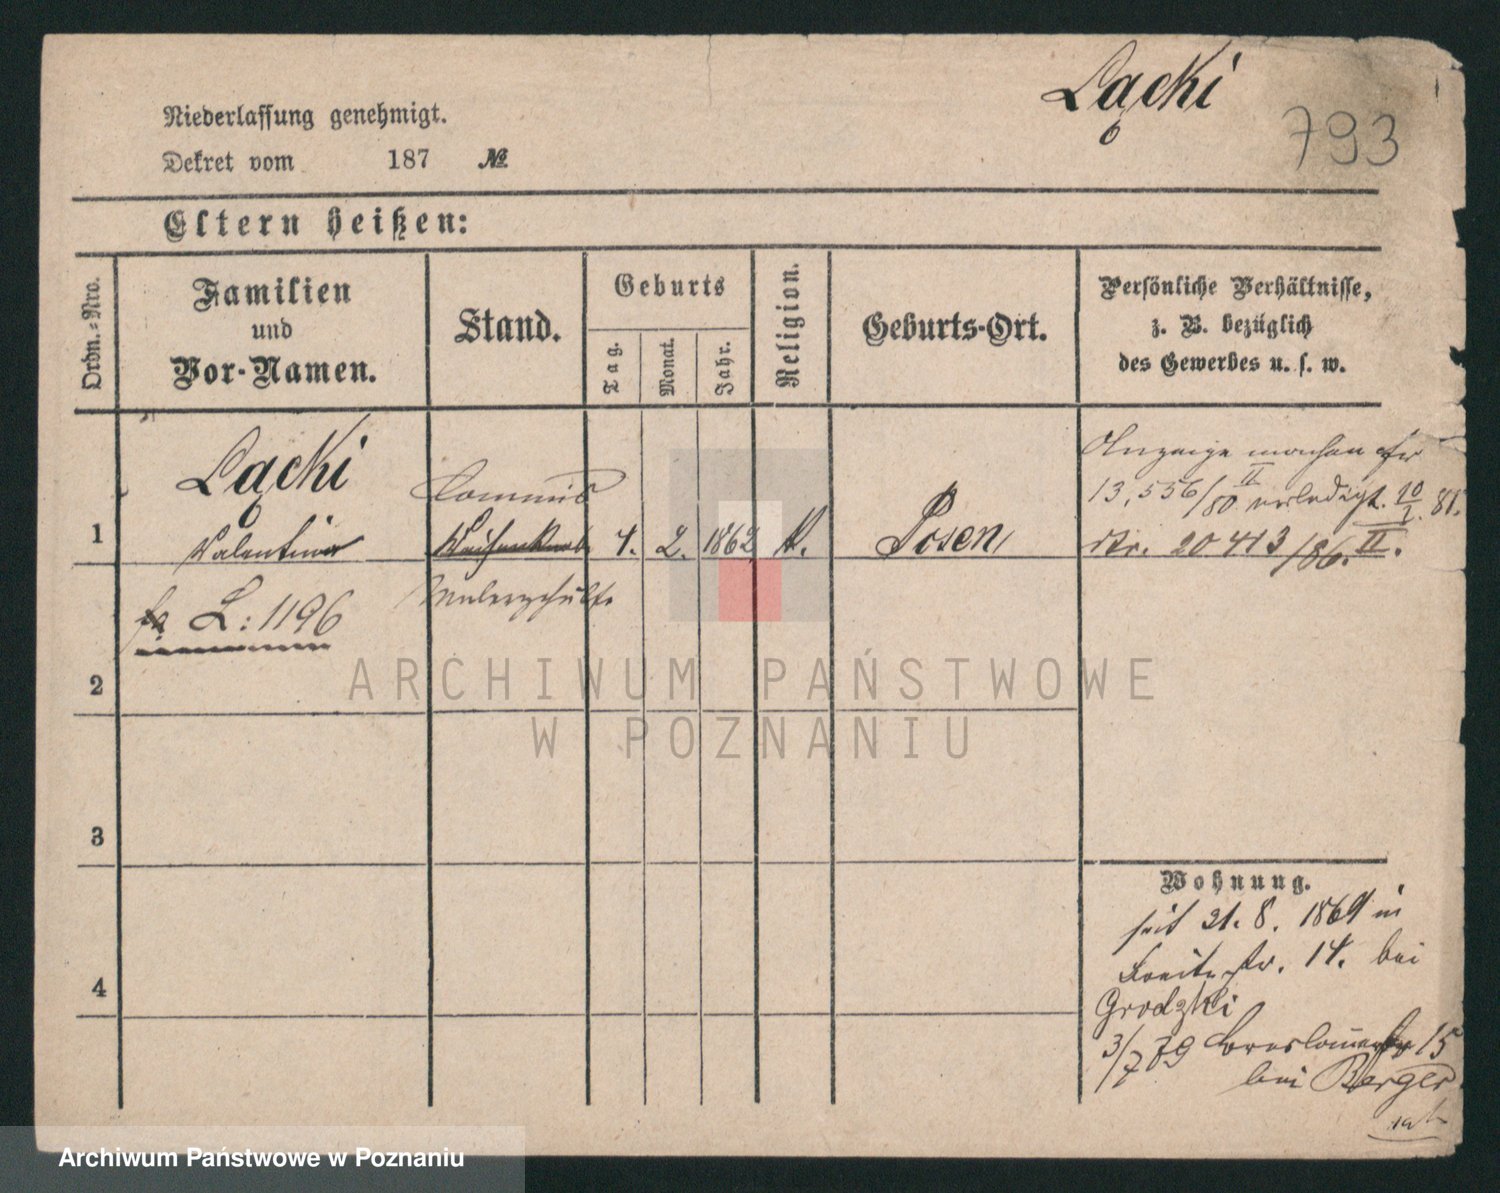 Łącki
793
Niederlassung genehmigt.
Dekret vom 187 №
Eltern heißen:
Ordn.-Nro.
Familien
und
Vor-Namen.
Stand.
Geburts
Tag.
Monat.
Jahr.
Religion.
Geburts-Ort.
Persönliche Verhältnisse,
z. B. bezüglich
des Gewerbes u. s. w.
1
Łącki
Valentin
Commis
Waisenknabe
2. 1862 K. Posen
Anzeige machen
13,556/80 II erledigt. 10/1. 81.
Nr. 20413/86. II.
L: 1196
2
3
4
Wohnung.
seit 21. 8. 1869 in
Breitestr. 14. bei
Grodzki
3/7 79 Breslauerstr 15
bei Berger
ARCHIWUM PAŃSTWOWE
W POZNANIU
Archiwum Państwowe w Poznaniu